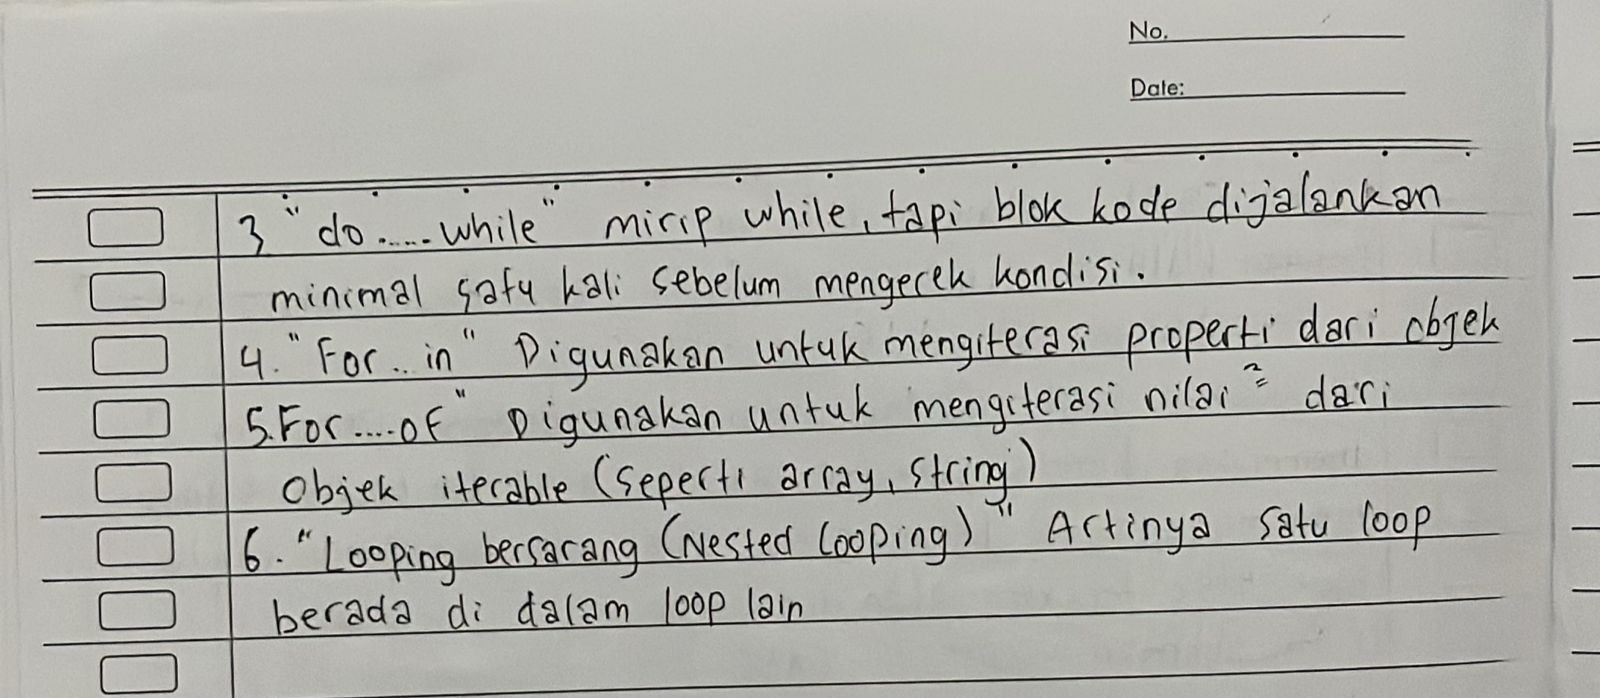 No.
Date:
3 "do.....while" mirip while, tapi blok kode dijalankan
minimal satu kali sebelum mengecek kondisi.
4. "For.. in" Digunakan untuk mengiterasi properti dari objek
5. For....of" Digunakan untuk mengiterasi nilai² dari
Objek iterable (seperti array, string)
6. "Looping bersarang (Nested Looping)" Artinya satu loop
berada di dalam loop lain